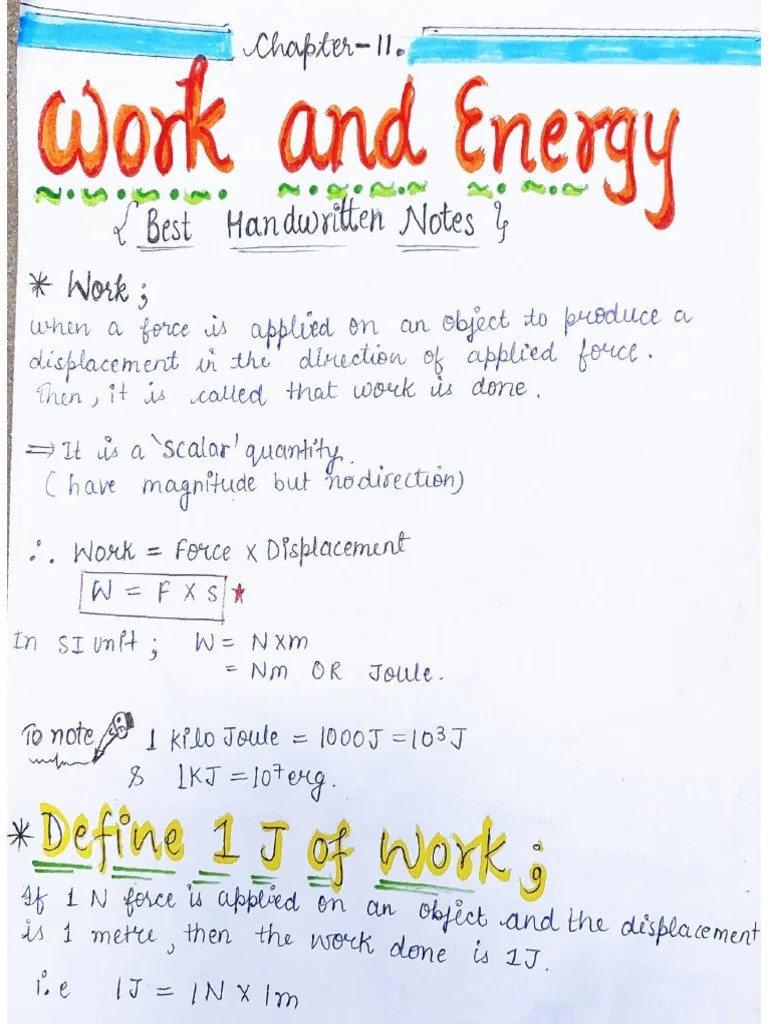 Chapter-11.
Work and Energy
{ Best Handwritten Notes }
* Work ;
when a force is applied on an object to produce a
displacement in the direction of applied force.
Then, it is called that work is done.
⇒ It is a 'scalar' quantity.
(have magnitude but no direction)
∴ Work = Force x Displacement
W = F X S ★
In SI unit ; W = N x m
= Nm OR Joule.
To note 1 kilo Joule = 1000J = 10³J
& 1KJ = 10⁷erg.
* Define 1 J of Work ;
If 1 N force is applied on an object and the displacement
is 1 metre, then the work done is 1J.
i.e 1J = 1N x 1m